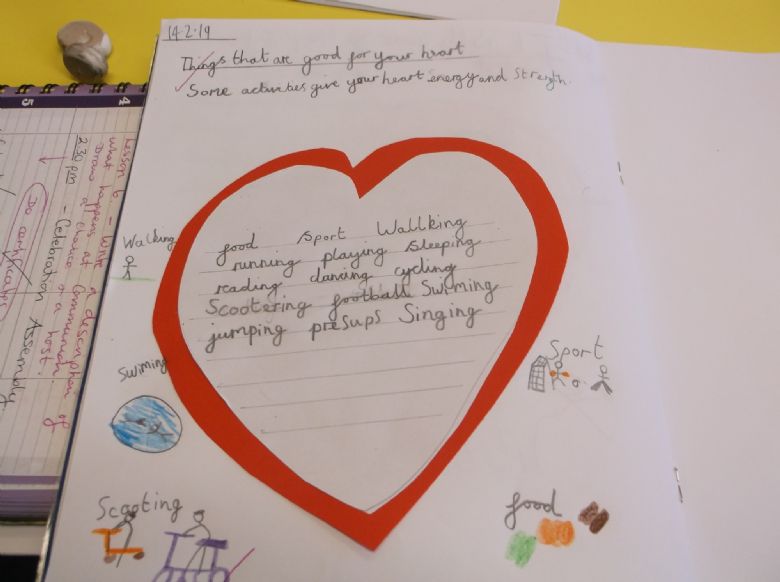 14.2.19
Things that are good for your heart
Some activities give your heart energy and Strength.
food sport Wallking
running playing sleeping
reading dancing cycling
Scootering football Swiming
jumping presups Singing
Walking
swiming
Scooting
Sport
food
4
5
Lesson 6 - Write a description of
what happens at Communion.
Draw a chalice & a host.
2.30 pm - Celebration Assembly